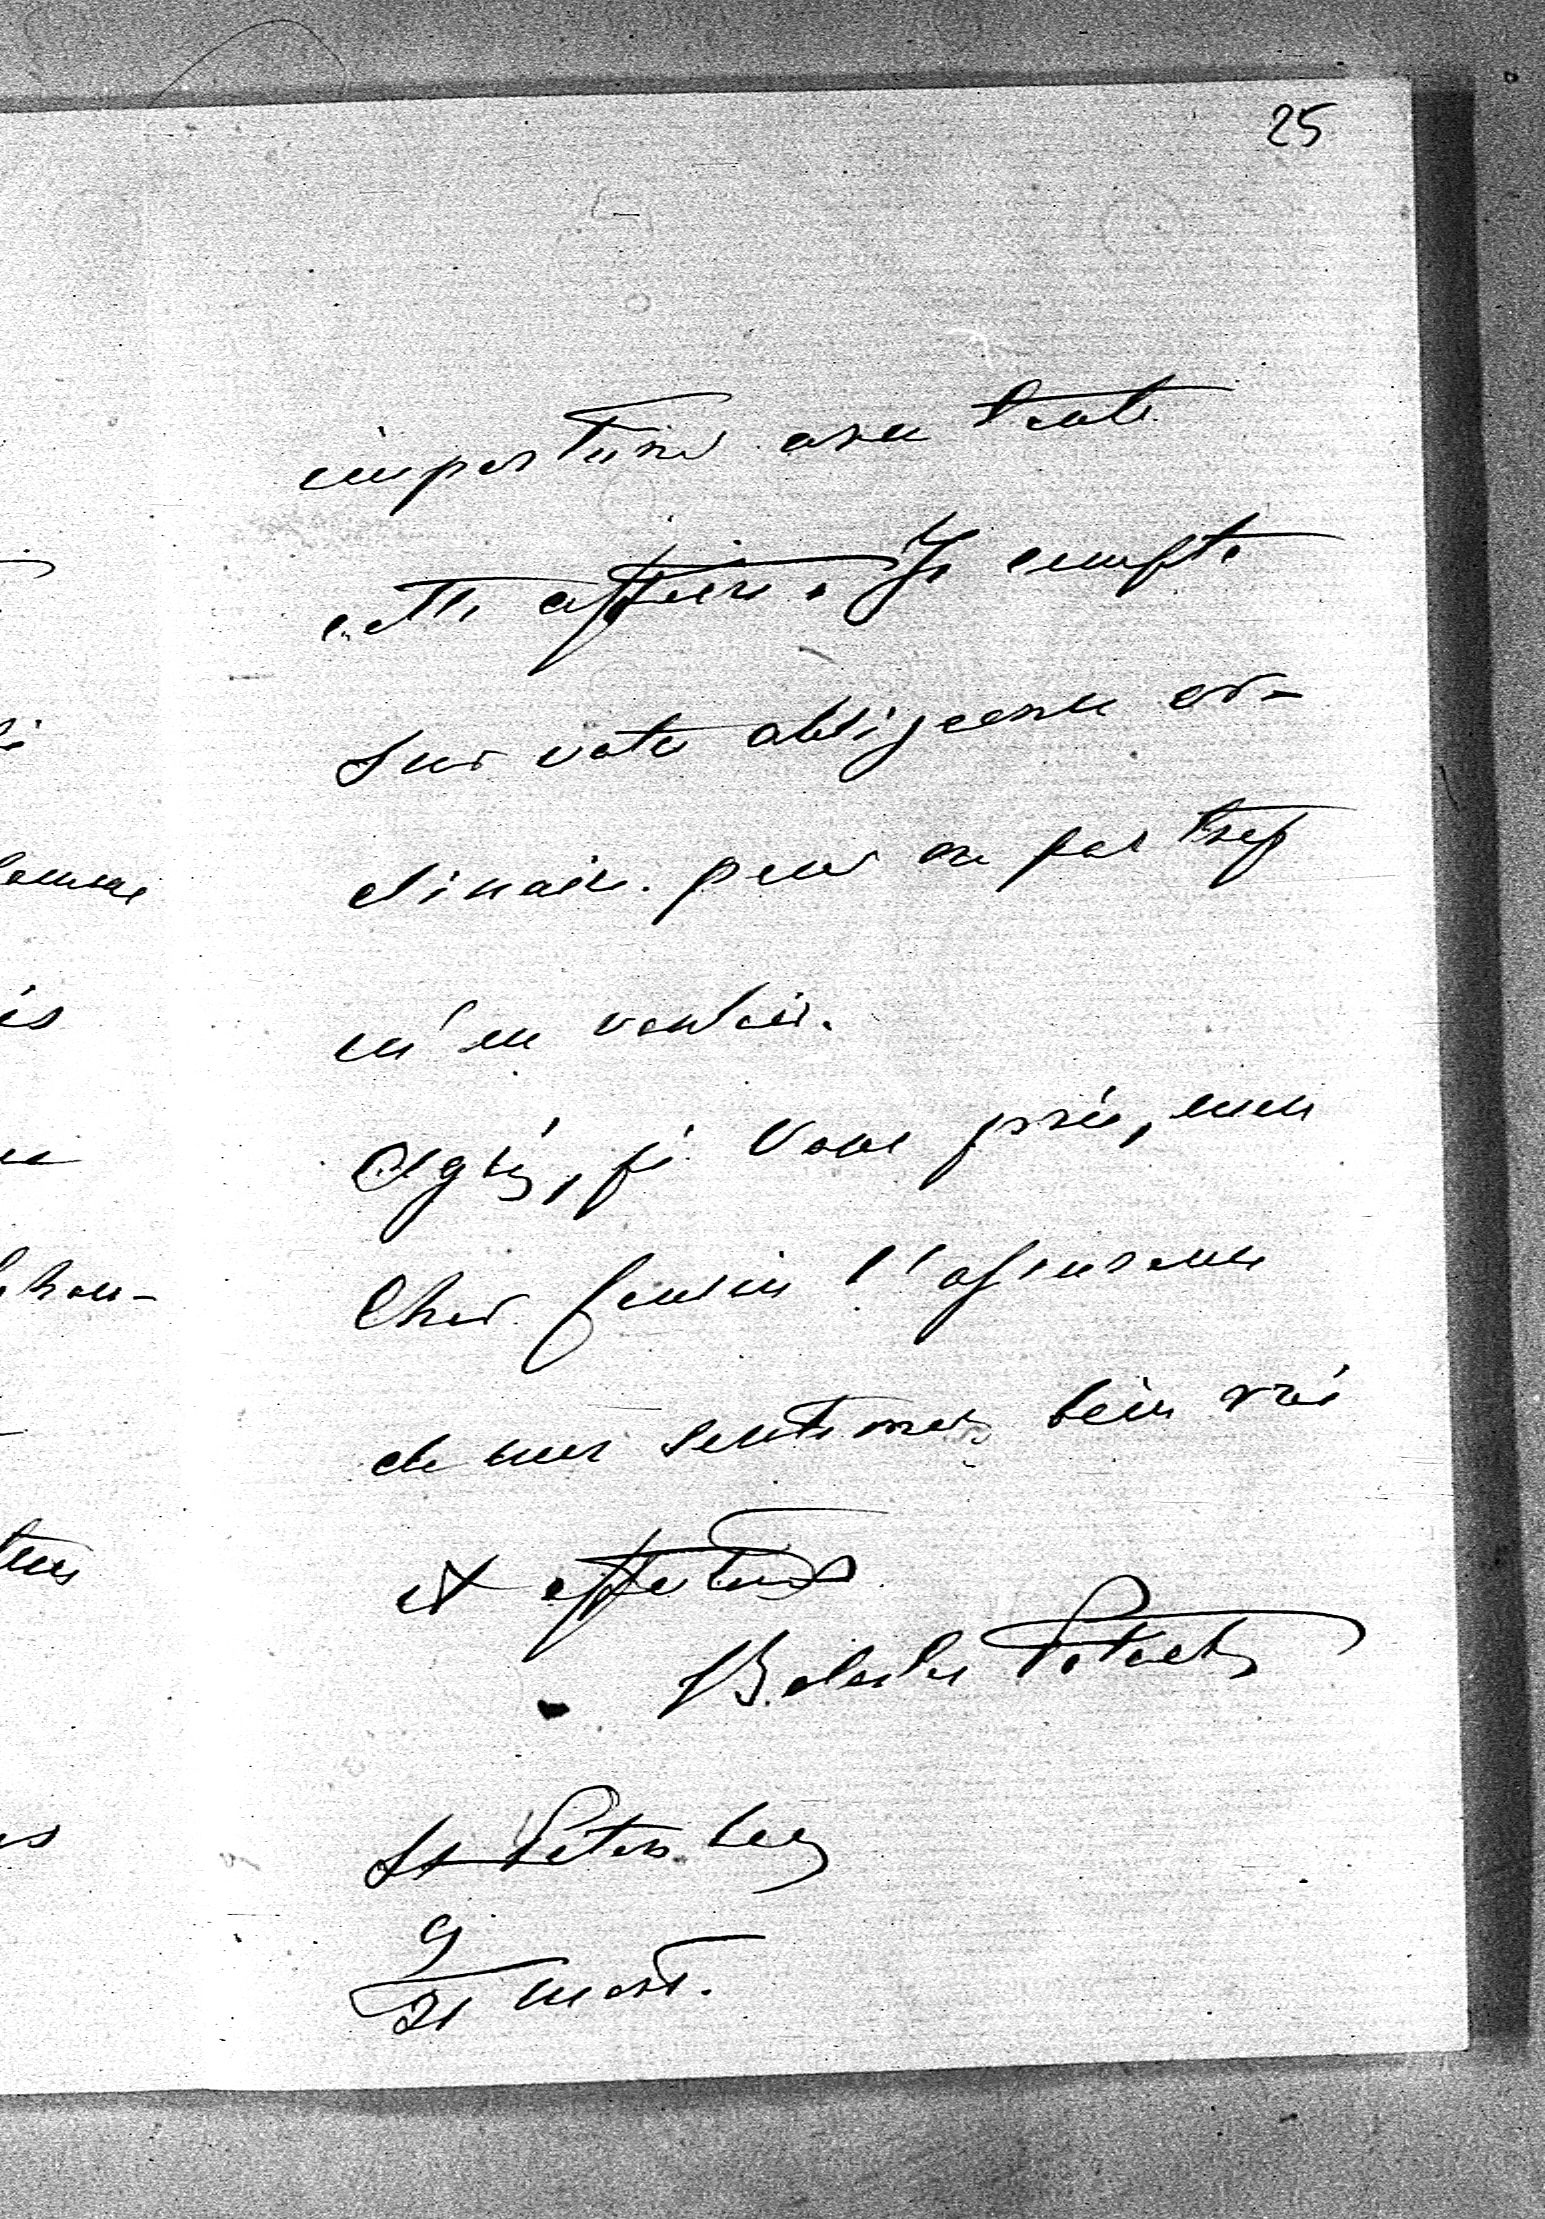 25
importuner avec toute
cette affaire. Je compte
sur votre obligeance or-
dinaire pour ne pas trop
m'en vouloir.
Agréez, je Vous prie, mon
Cher Cousin l'assurance
de mes sentimens bien vrai
et affectueux
Boleslas Potocki
St Petersbourg
9
21 mars.